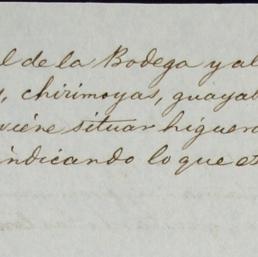 l de la Bodega y al
s, chirimoyas, guayab
viene situar higuer
indicando lo que es